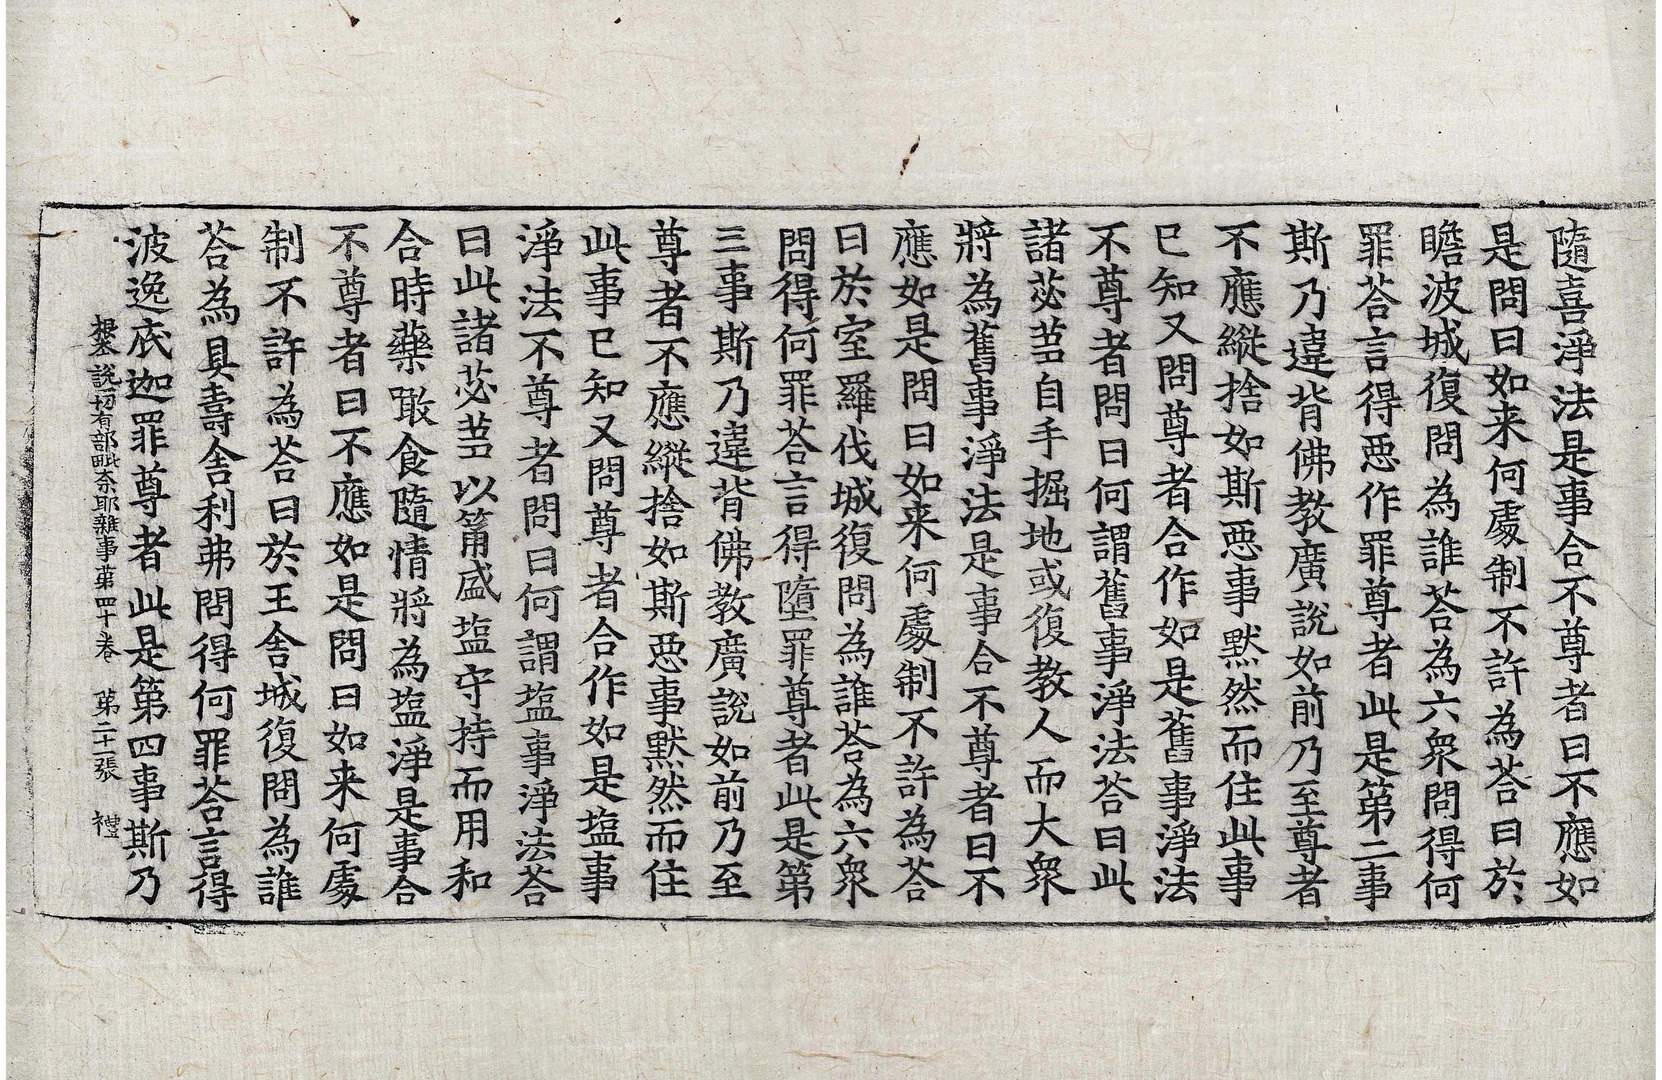 隨喜淨法是事合不尊者曰不應如
是問曰如来何處制不許為荅曰於
瞻波城復問為誰荅為六衆問得何
罪荅言得惡作罪尊者此是第二事
斯乃違背佛教廣說如前乃至尊者
不應縱捨如斯惡事默然而住此事
已知又問尊者合作如是舊事淨法
不尊者問曰何謂舊事淨法荅曰此
諸苾芻自手掘地或復教人而大衆
將為舊事淨法是事合不尊者曰不
應如是問曰如来何處制不許為荅
曰於室羅伐城復問為誰荅為六衆
問得何罪荅言得墮罪尊者此是第
三事斯乃違背佛教廣說如前乃至
尊者不應縱捨如斯惡事默然而住
此事已知又問尊者合作如是塩事
淨法不尊者問曰何謂塩事淨法荅
曰此諸苾芻以筩盛塩守持而用和
合時藥噉食隨情將為塩淨是事合
不尊者曰不應如是問曰如来何處
制不許為荅曰於王舍城復問為誰
荅為具壽舍利弗問得何罪荅言得
波逸底迦罪尊者此是第四事斯乃
說一切有部毗奈耶雜事第四十卷 第二十二張 禮